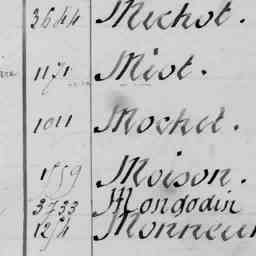 3644 Michot.
1171 Miot.
1011 Mochet.
1759 Moison.
3733 Mongodin
1274 Monneur